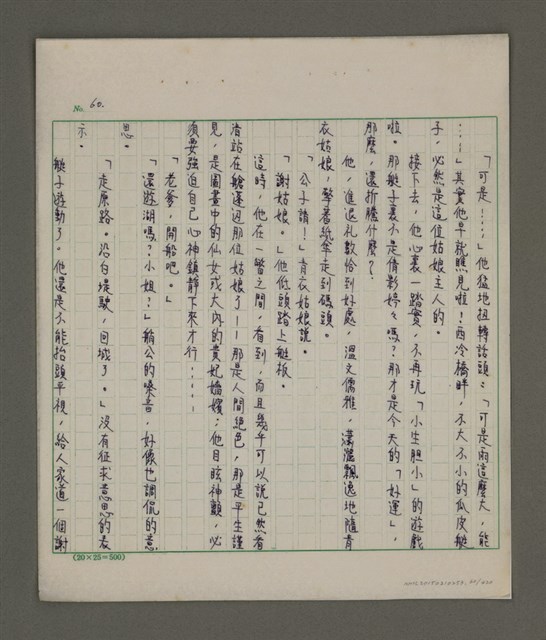 No. 60.
「可是！……」他猛地扭轉話頭：「可是雨這麼大，能
……」其實他早就瞧見啦！西冷橋畔，不大不小的瓜皮艇
子，必然是這位姑娘主人的。
接下去，他心裏一踏實，不再玩「小生胆小」的遊戲
啦。那艇子裏不是倩影婷々嗎？那才是今天的「好運」，
那麼，還折騰什麼？
他，進退礼數恰到好處，溫文儒雅，瀟灑飄逸地隨青
衣姑娘，擎著紙傘走到碼頭。
「公子請！」青衣姑娘說。
「謝姑娘。」他低頭踏上艇板。
這時，他在一瞥之間，看到，而且幾乎可以說已然看
清站在艙蓬邊那位姑娘了——那是人間絕色，那是平生謹
見，是圖畫中的仙女或大內的貴妃嬪嬪；他目眩神顫，必
須要強迫自己心神鎮靜下來才行……
「老爹，開船吧。」
「還遊湖嗎？小姐？」艄公的嗓音，好像也調侃的意
思。
「走原路。沿白堤駛，回城了。」沒有征求意思的表
示。
艇子遊動了。他還是不能抬頭平視，給人家道一個謝
(20×25＝500)